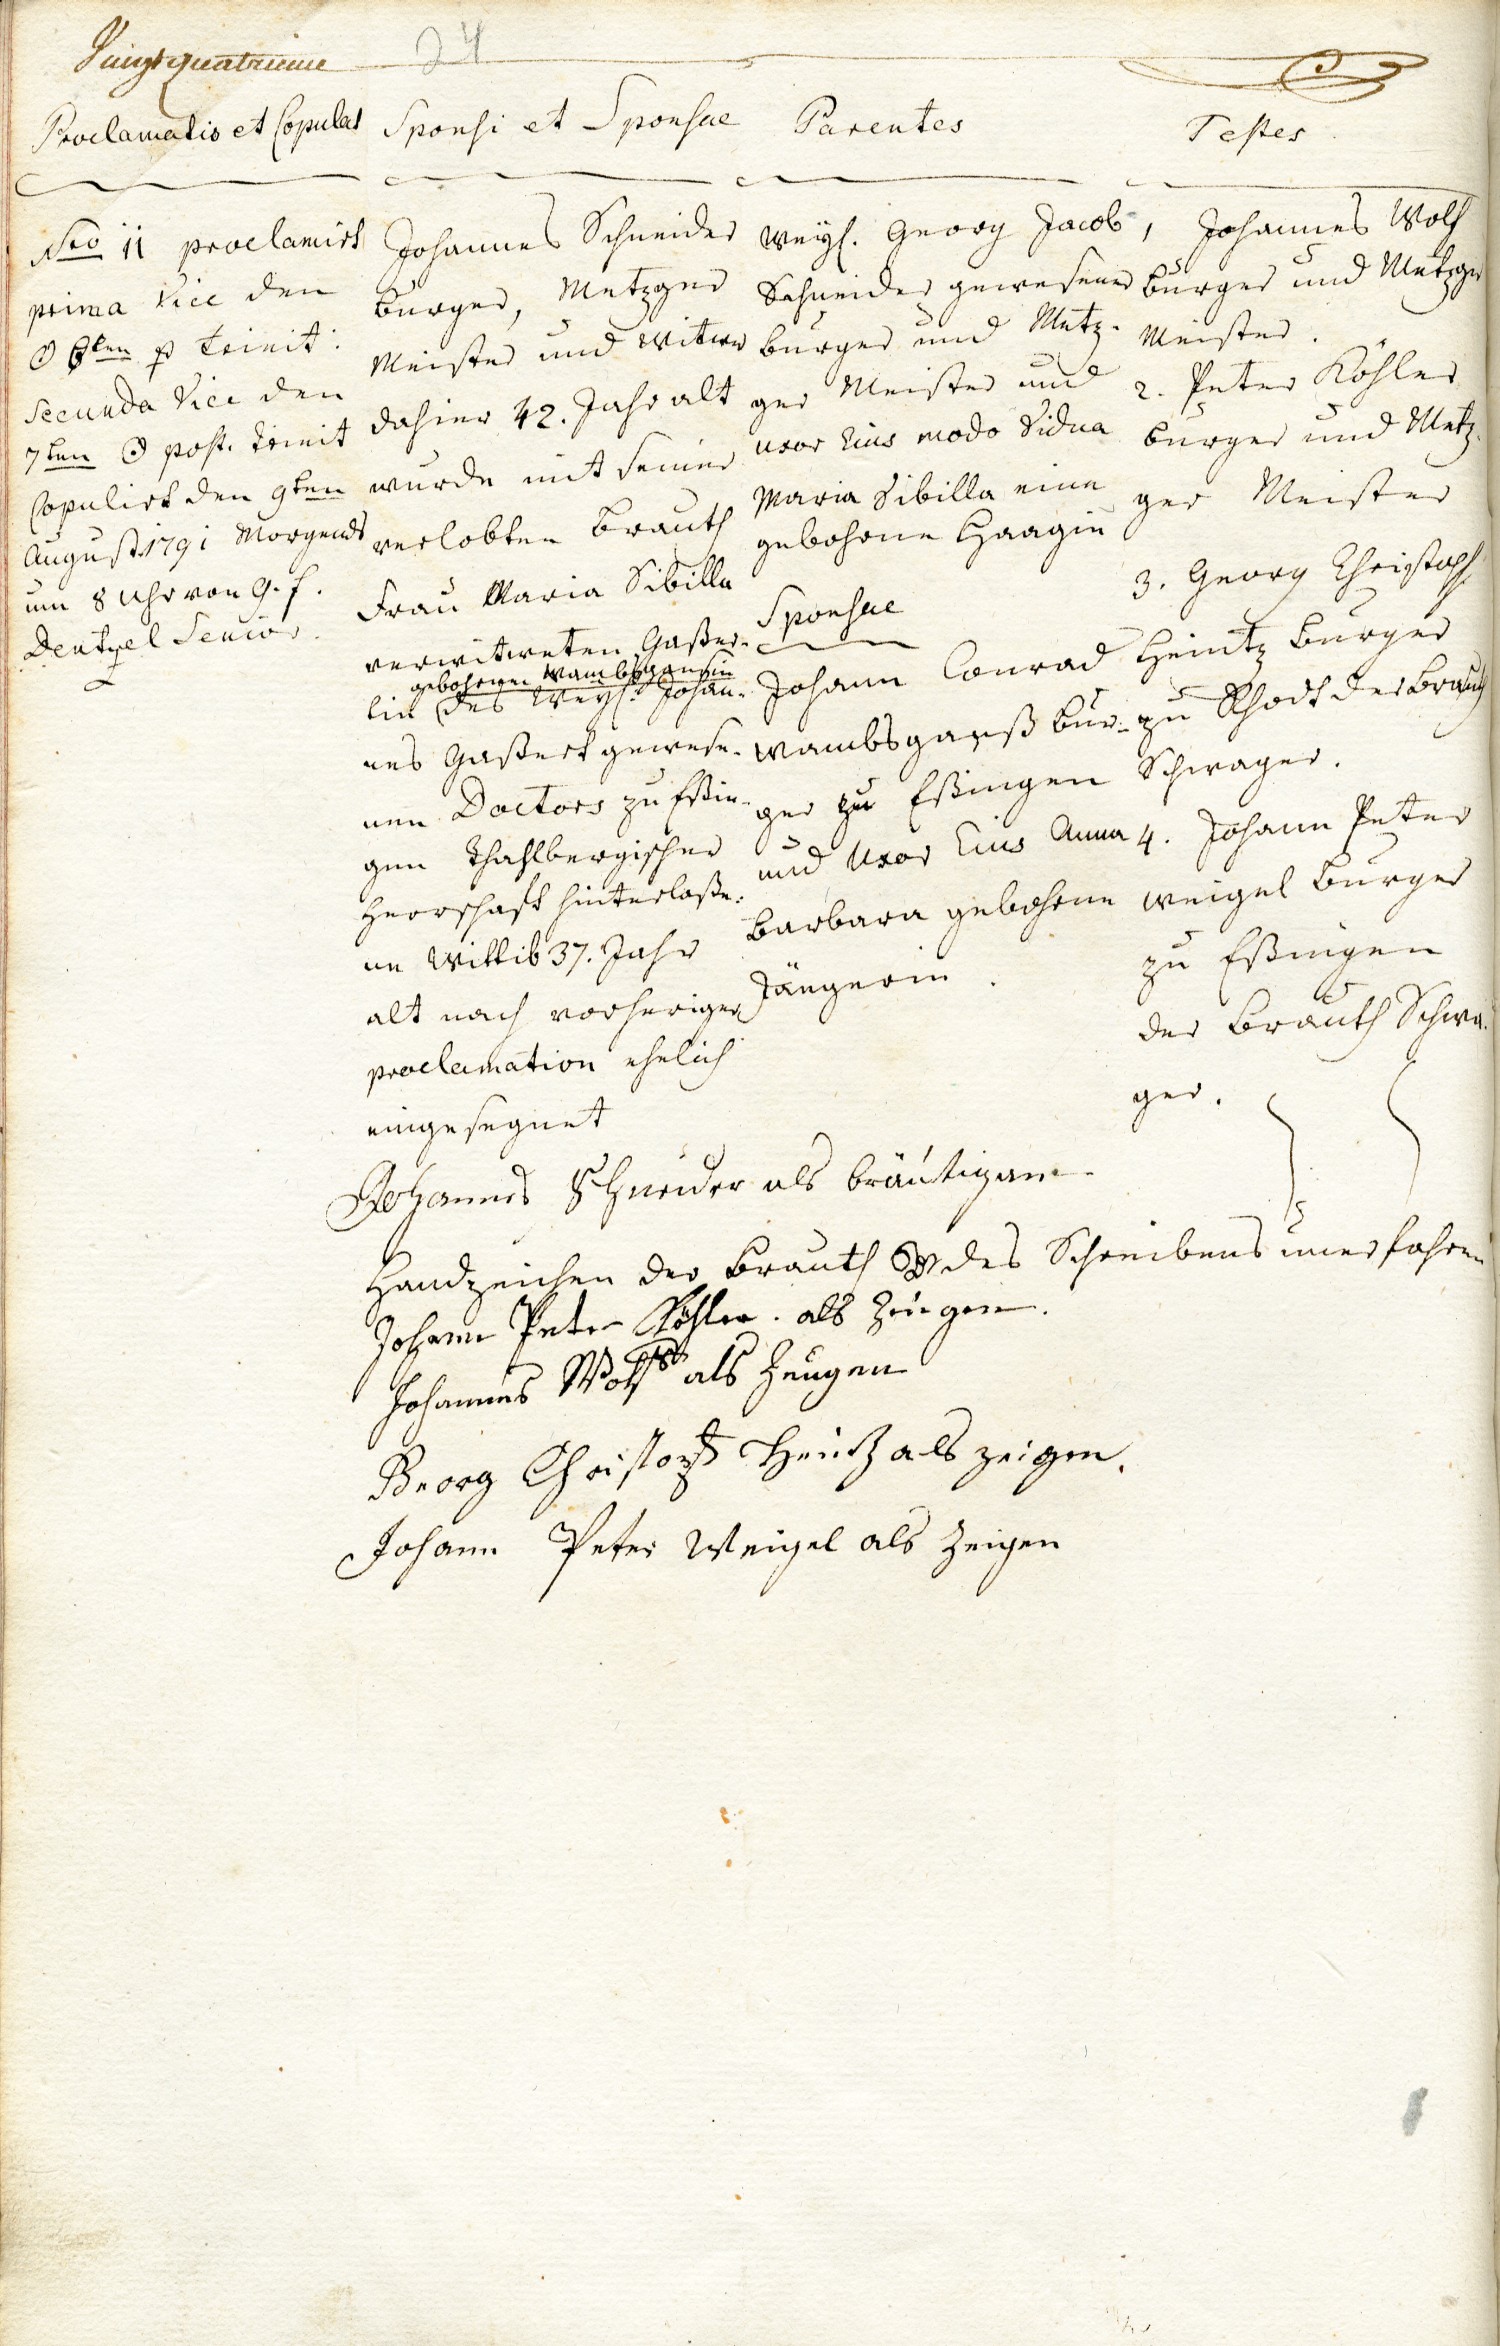 Vingtquatrieme 24
Proclamatio et Copulat
Nro 11 proclamirt
prima Vice den
☉ 6ten p Trinit:
Secunda Vice den
7ten ☉ post. Trinit
Copulirt den 9ten
August 1791 Morgends
um 8 Uhr von G. f.
Dentzel Senior.
Sponsi et Sponsae
Johannes Schneider
burger, Metzger
Meister und Witwer
dahier 42. Jahr alt
wurde mit seiner
verlobten Brauth
Frau Maria Sibilla
verwitweten Gaßer-
gebohrnen Wambsgansin
lin des Weyl. Johan-
nes Gaßert gewese-
nen Doctors zu Eßin-
gen Thahlbergischer
Herrschaft hinterlaße-
ne Wittib 37. Jahr
alt nach vorheriger
proclamation ehelich
eingesegnet
Parentes
weyl. Georg Jacob
Schneider gewesener
burger und Metz-
ger Meister und
uxor Eius modo Vidua
Maria Sibilla eine
gebohrne Haagin
Sponsae
Johann Conrad
Wambsganß bur-
ger zu Eßingen
und Uxor Eius Anna
Barbara gebohrne
Jängerin.
Testes
1, Johannes Wolf
burger und Metzger
Meister.
2. Peter Köhler
burger und Metz-
ger Meister
3. Georg Christoph
Heintz burger
zu Rhodt der Brauth
Schwager.
4. Johann Peter
Weigel burger
zu Eßingen
der Brauth Schwa-
ger.
Johannes Schneider als bräutigam
Handzeichen der Brauth des Schreibens unerfahren
Johann Peter Köhler. als Zeugen.
Johannes Wolf als Zeugen
Georg Christoph Heintz als zeigen.
Johann Peter Weigel als Zeigen